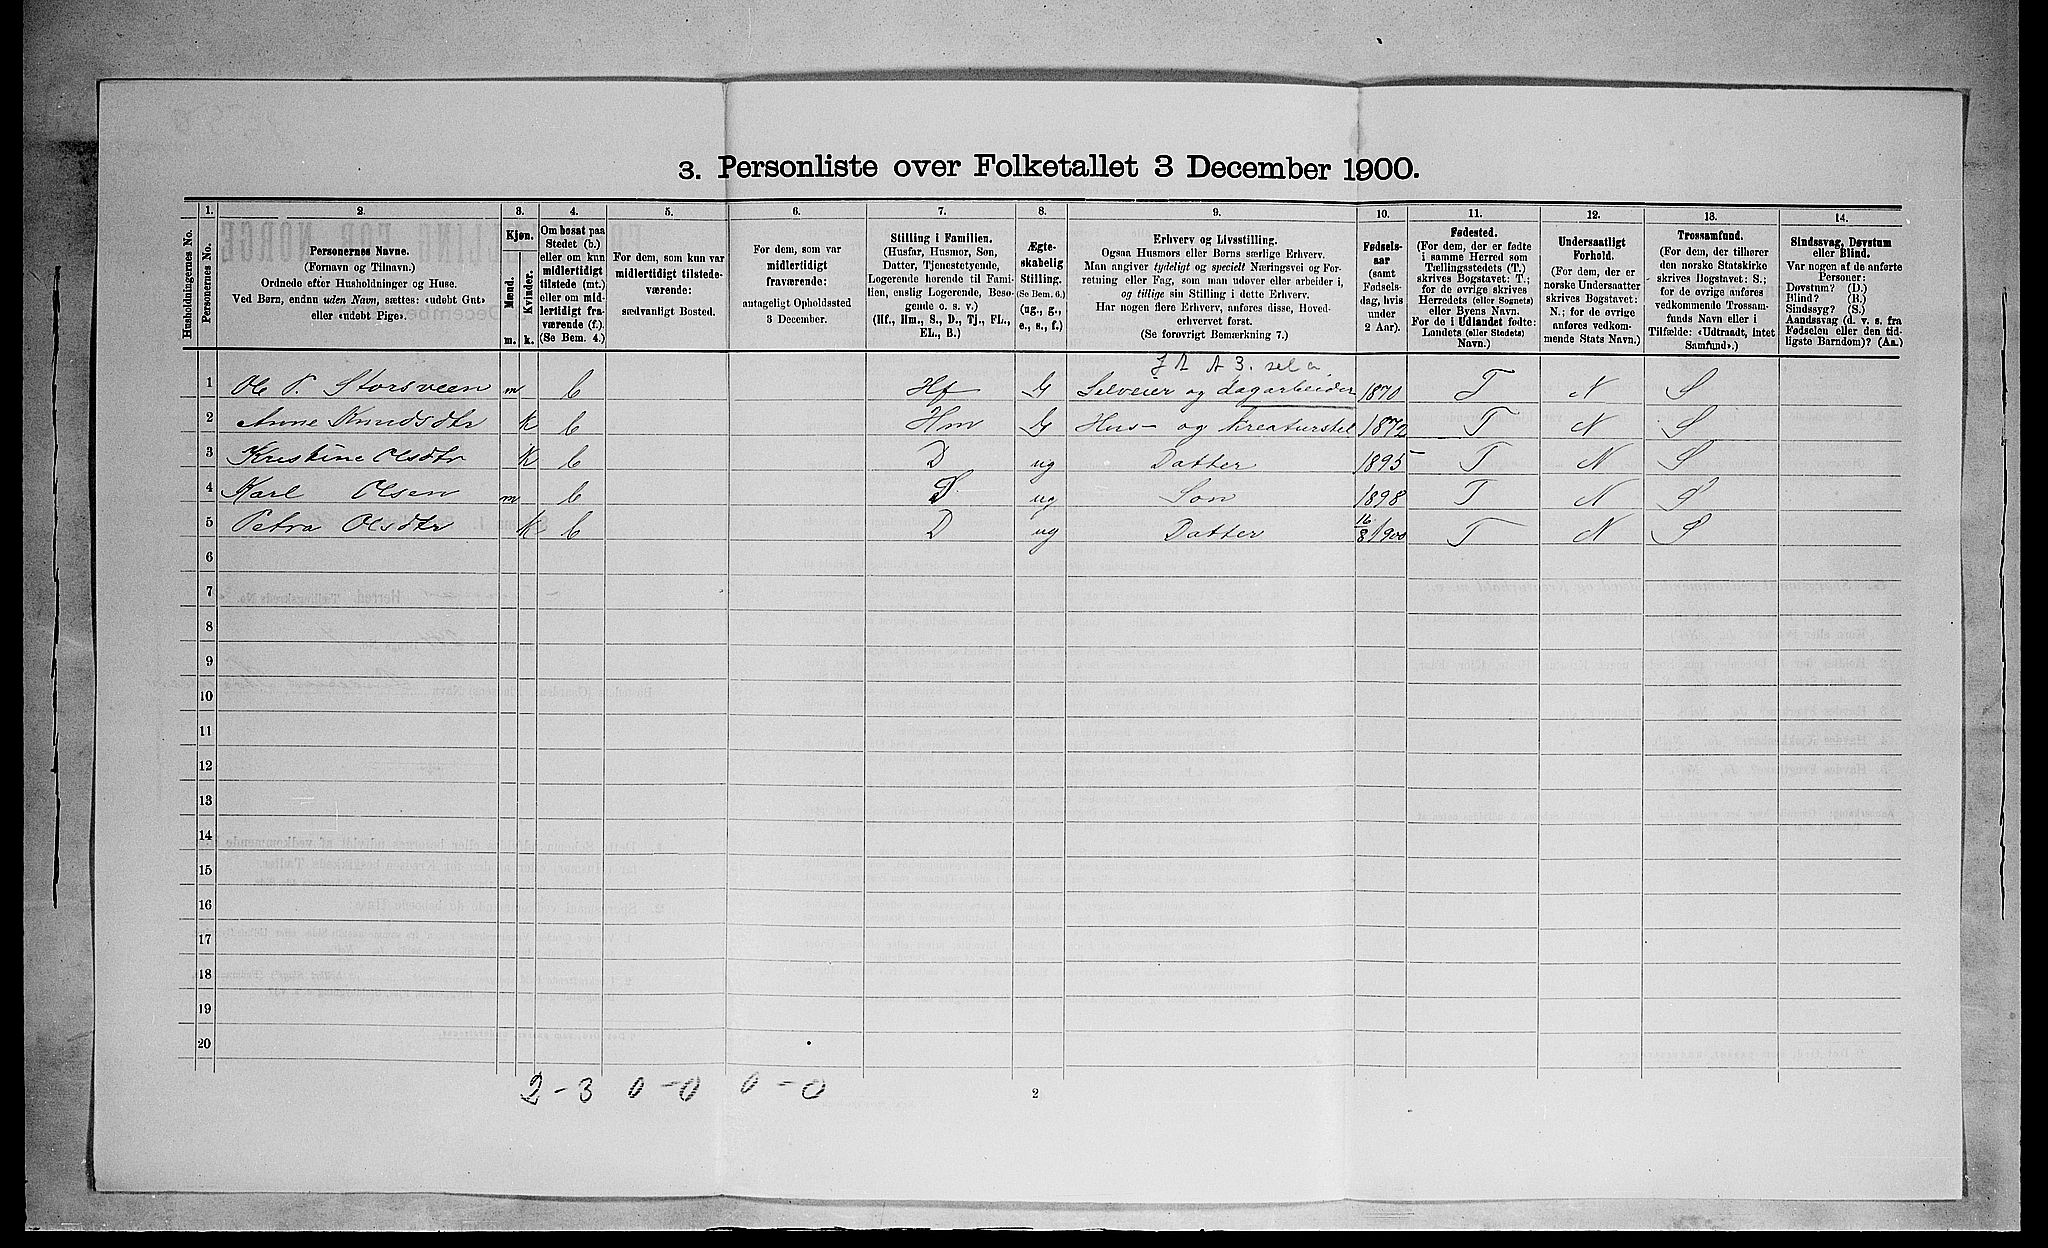 3. Personliste over Folketallet 3 December 1900.
1. 2. 3. 4. 5. 6. 7. 8. 9. 10. 11. 12. 13. 14.
Husholdningernes No.
Personernes No.
Personernes Navne.
(Fornavn og Tilnavn.)
Ordnede efter Husholdninger og Huse.
Ved Børn, endnu uden Navn, sættes: «udøbt Gut»
eller «udøbt Pige».
Kjøn.
Mænd.
Kvinder.
m. k.
Om bosat paa
Stedet (b.)
eller om kun
midlertidigt
tilstede (mt.)
eller om mid-
lertidigt fra-
værende (f.).
(Se Bem. 4.)
For dem, som kun var
midlertidigt tilstede-
værende:
sædvanligt Bosted.
For dem, som var
midlertidigt
fraværende:
antageligt Opholdssted
3 December.
Stilling i Familien.
(Husfar, Husmor, Søn,
Datter, Tjenestetyende,
Logerende hørende til Fami-
lien, enslig Logerende, Besø-
gende o. s. v.)
(Hf., Hm., S., D., Tj., FL.,
EL., B.)
Ægte-
skabelig
Stilling.
(Se Bem. 6.)
(ug., g.,
e., s., f.)
Erhverv og Livsstilling.
Ogsaa Husmors eller Børns særlige Erhverv.
Man angiver tydeligt og specielt Næringsvei og For-
retning eller Fag, som man udøver eller arbeider i,
og tillige sin Stilling i dette Erhverv.
Har nogen flere Erhverv, anføres disse, Hoved-
erhvervet først.
(Se forøvrigt Bemærkning 7.)
Fødsels-
aar
(samt
Fødsels-
dag, hvis
under
2 Aar).
Fødested.
(For dem, der er fødte
i samme Herred som
Tællingsstedets (T.)
skrives Bogstavet: T.;
for de øvrige skrives
Herredets (eller Sognets)
eller Byens Navn.
For de i Udlandet fødte:
Landets (eller Stedets)
Navn.)
Undersaatligt
Forhold.
(For dem, der er
norske Undersaatter
skrives Bogstavet:
N.; for de øvrige
anføres vedkom-
mende Stats Navn.)
Trossamfund.
(For dem, der tilhører
den norske Statskirke
skrives Bogstavet: S.;
for de øvrige anføres
vedkommende Trossam-
funds Navn eller i
Tilfælde: «Udtraadt, intet
Samfund».)
Sindssvag, Døvstum
eller Blind.
Var nogen af de anførte
Personer:
Døvstum? (D.)
Blind? (B.)
Sindssyg? (S.)
Aandssvag (d. v. s. fra
Fødselen eller den tid-
ligste Barndom)? (Aa.)
1 Ole P. Storsveen m b Hf G Selveier og dagarbeider 1870 T N S
2 Anne Knudsdtr k b Hm G Hus- og kreaturstel 1872 T N S
3 Kristine Olsdtr k b D ug Datter 1895 T N S
4 Karl Olsen m b S ug Søn 1898 T N S
5 Petra Olsdtr k b D ug Datter 16/8 1900 T N S
6
7
8
9
10
11
12
13
14
15
16
17
18
19
20
2-3 0-0 0-0
2